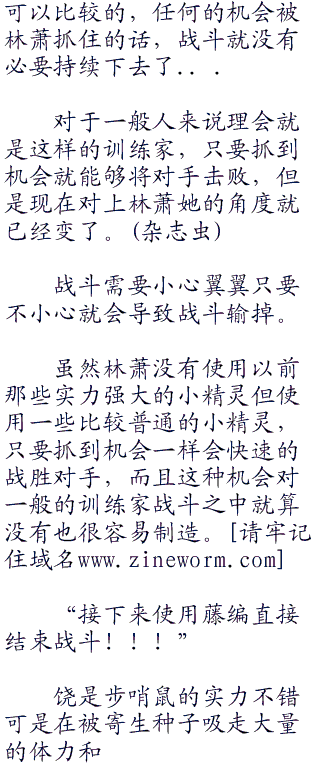 可以比较的，任何的机会被
林萧抓住的话，战斗就没有
必要持续下去了...
对于一般人来说理会就
是这样的训练家，只要抓到
机会就能够将对手击败，但
是现在对上林萧她的角度就
已经变了。(杂志虫)
战斗需要小心翼翼只要
不小心就会导致战斗输掉。
虽然林萧没有使用以前
那些实力强大的小精灵但使
用一些比较普通的小精灵，
只要抓到机会一样会快速的
战胜对手，而且这种机会对
一般的训练家战斗之中就算
没有也很容易制造。[请牢记
住域名www.zineworm.com]
“接下来使用藤编直接
结束战斗！！！”
饶是步哨鼠的实力不错
可是在被寄生种子吸走大量
的体力和